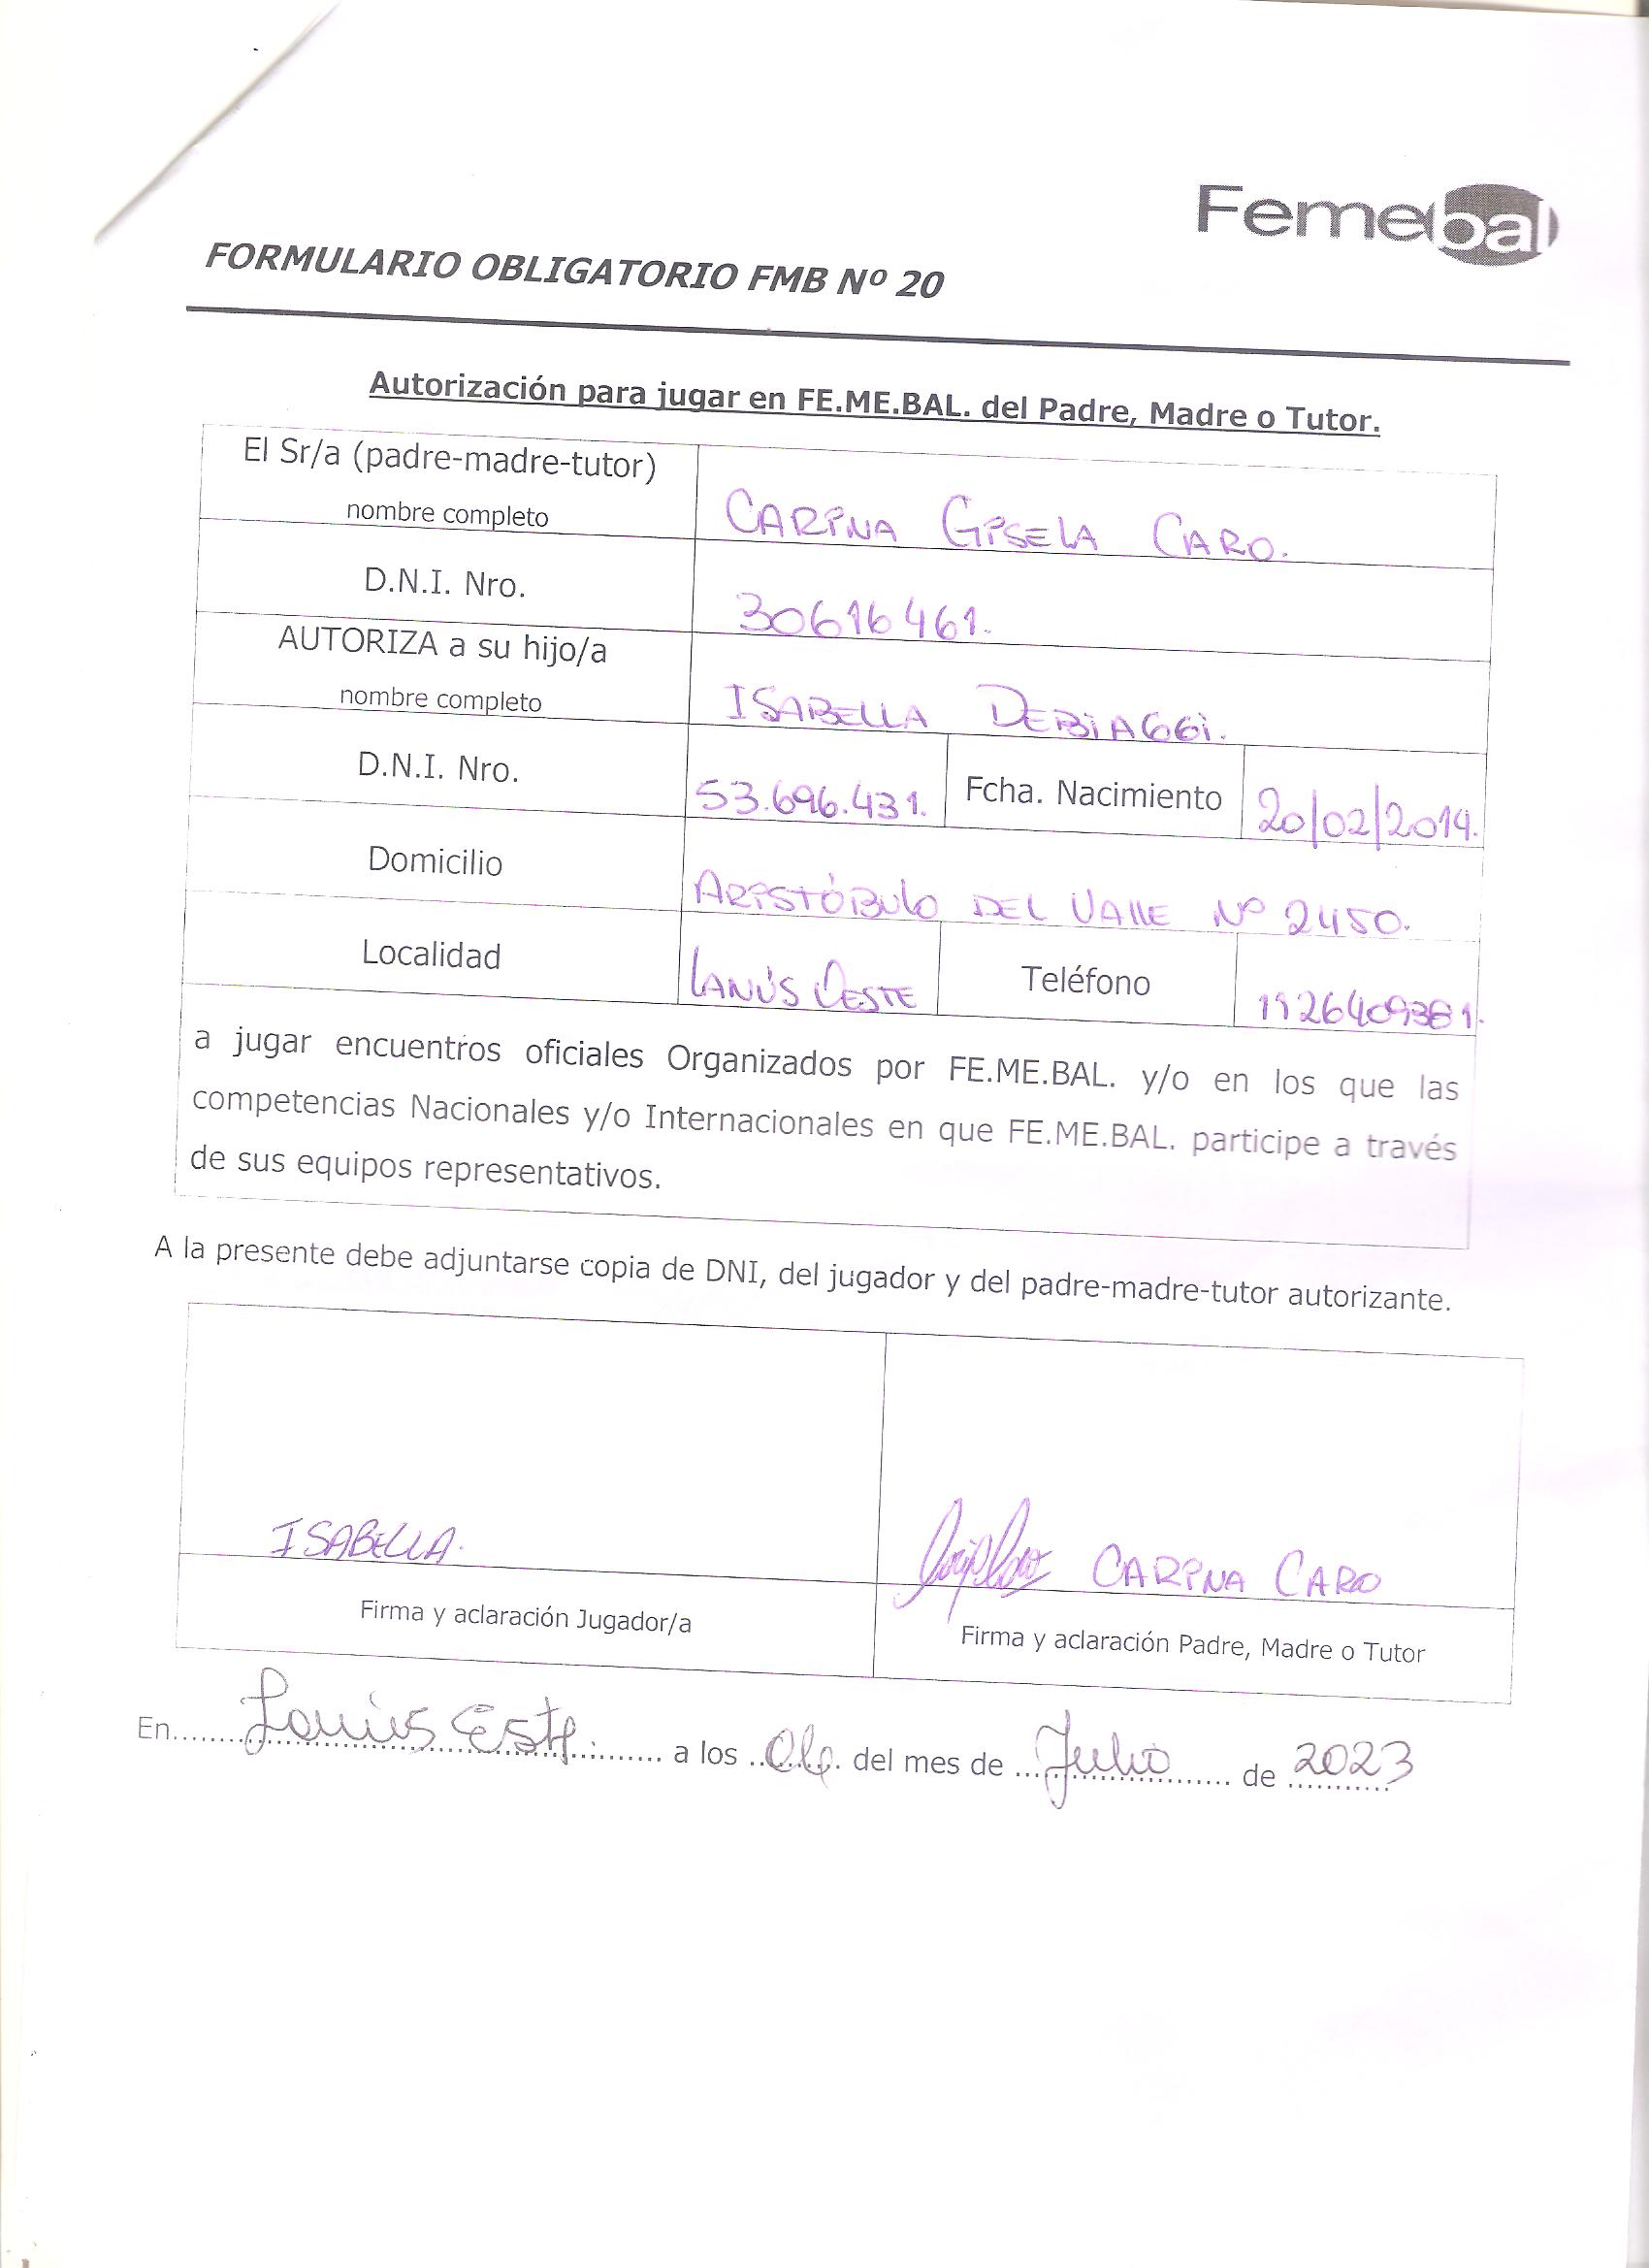 Femebal
FORMULARIO OBLIGATORIO FMB Nº 20
Autorización para jugar en FE.ME.BAL. del Padre, Madre o Tutor.
El Sr/a (padre-madre-tutor)
nombre completo
CARINA GISELA CARO.
D.N.I. Nro.
30616461.
AUTORIZA a su hijo/a
nombre completo
ISABELLA DEBIAGGI.
D.N.I. Nro.
53.696.431.
Fcha. Nacimiento
20/02/2014.
Domicilio
ARISTÓBULO DEL VALLE Nº 2450.
Localidad
LANÚS OESTE
Teléfono
1126409381.
a jugar encuentros oficiales Organizados por FE.ME.BAL. y/o en los que las
competencias Nacionales y/o Internacionales en que FE.ME.BAL. participe a través
de sus equipos representativos.
A la presente debe adjuntarse copia de DNI, del jugador y del padre-madre-tutor autorizante.
ISABELLA.
CARINA CARO
Firma y aclaración Jugador/a
Firma y aclaración Padre, Madre o Tutor
En Lanús Este a los del mes de Julio de 2023